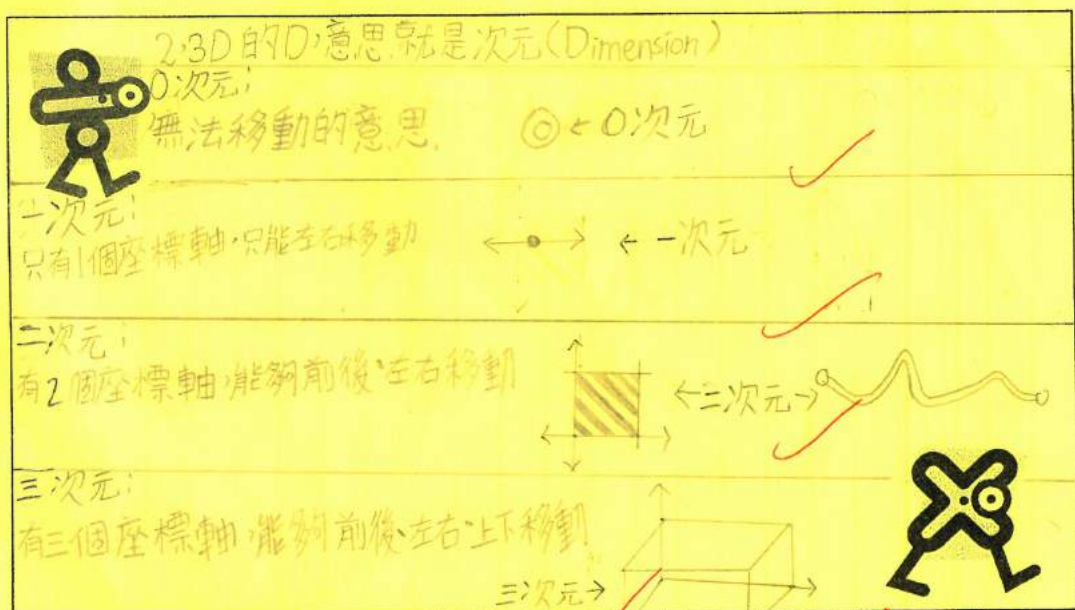 2,3D的D,意思就是次元(Dimension)
0次元:
無法移動的意思. ←0次元
一次元:
只有1個座標軸,只能左右移動 ←一次元
二次元:
有2個座標軸,能夠前後、左右移動 ←二次元→
三次元:
有三個座標軸,能夠前後、左右、上下移動
三次元→